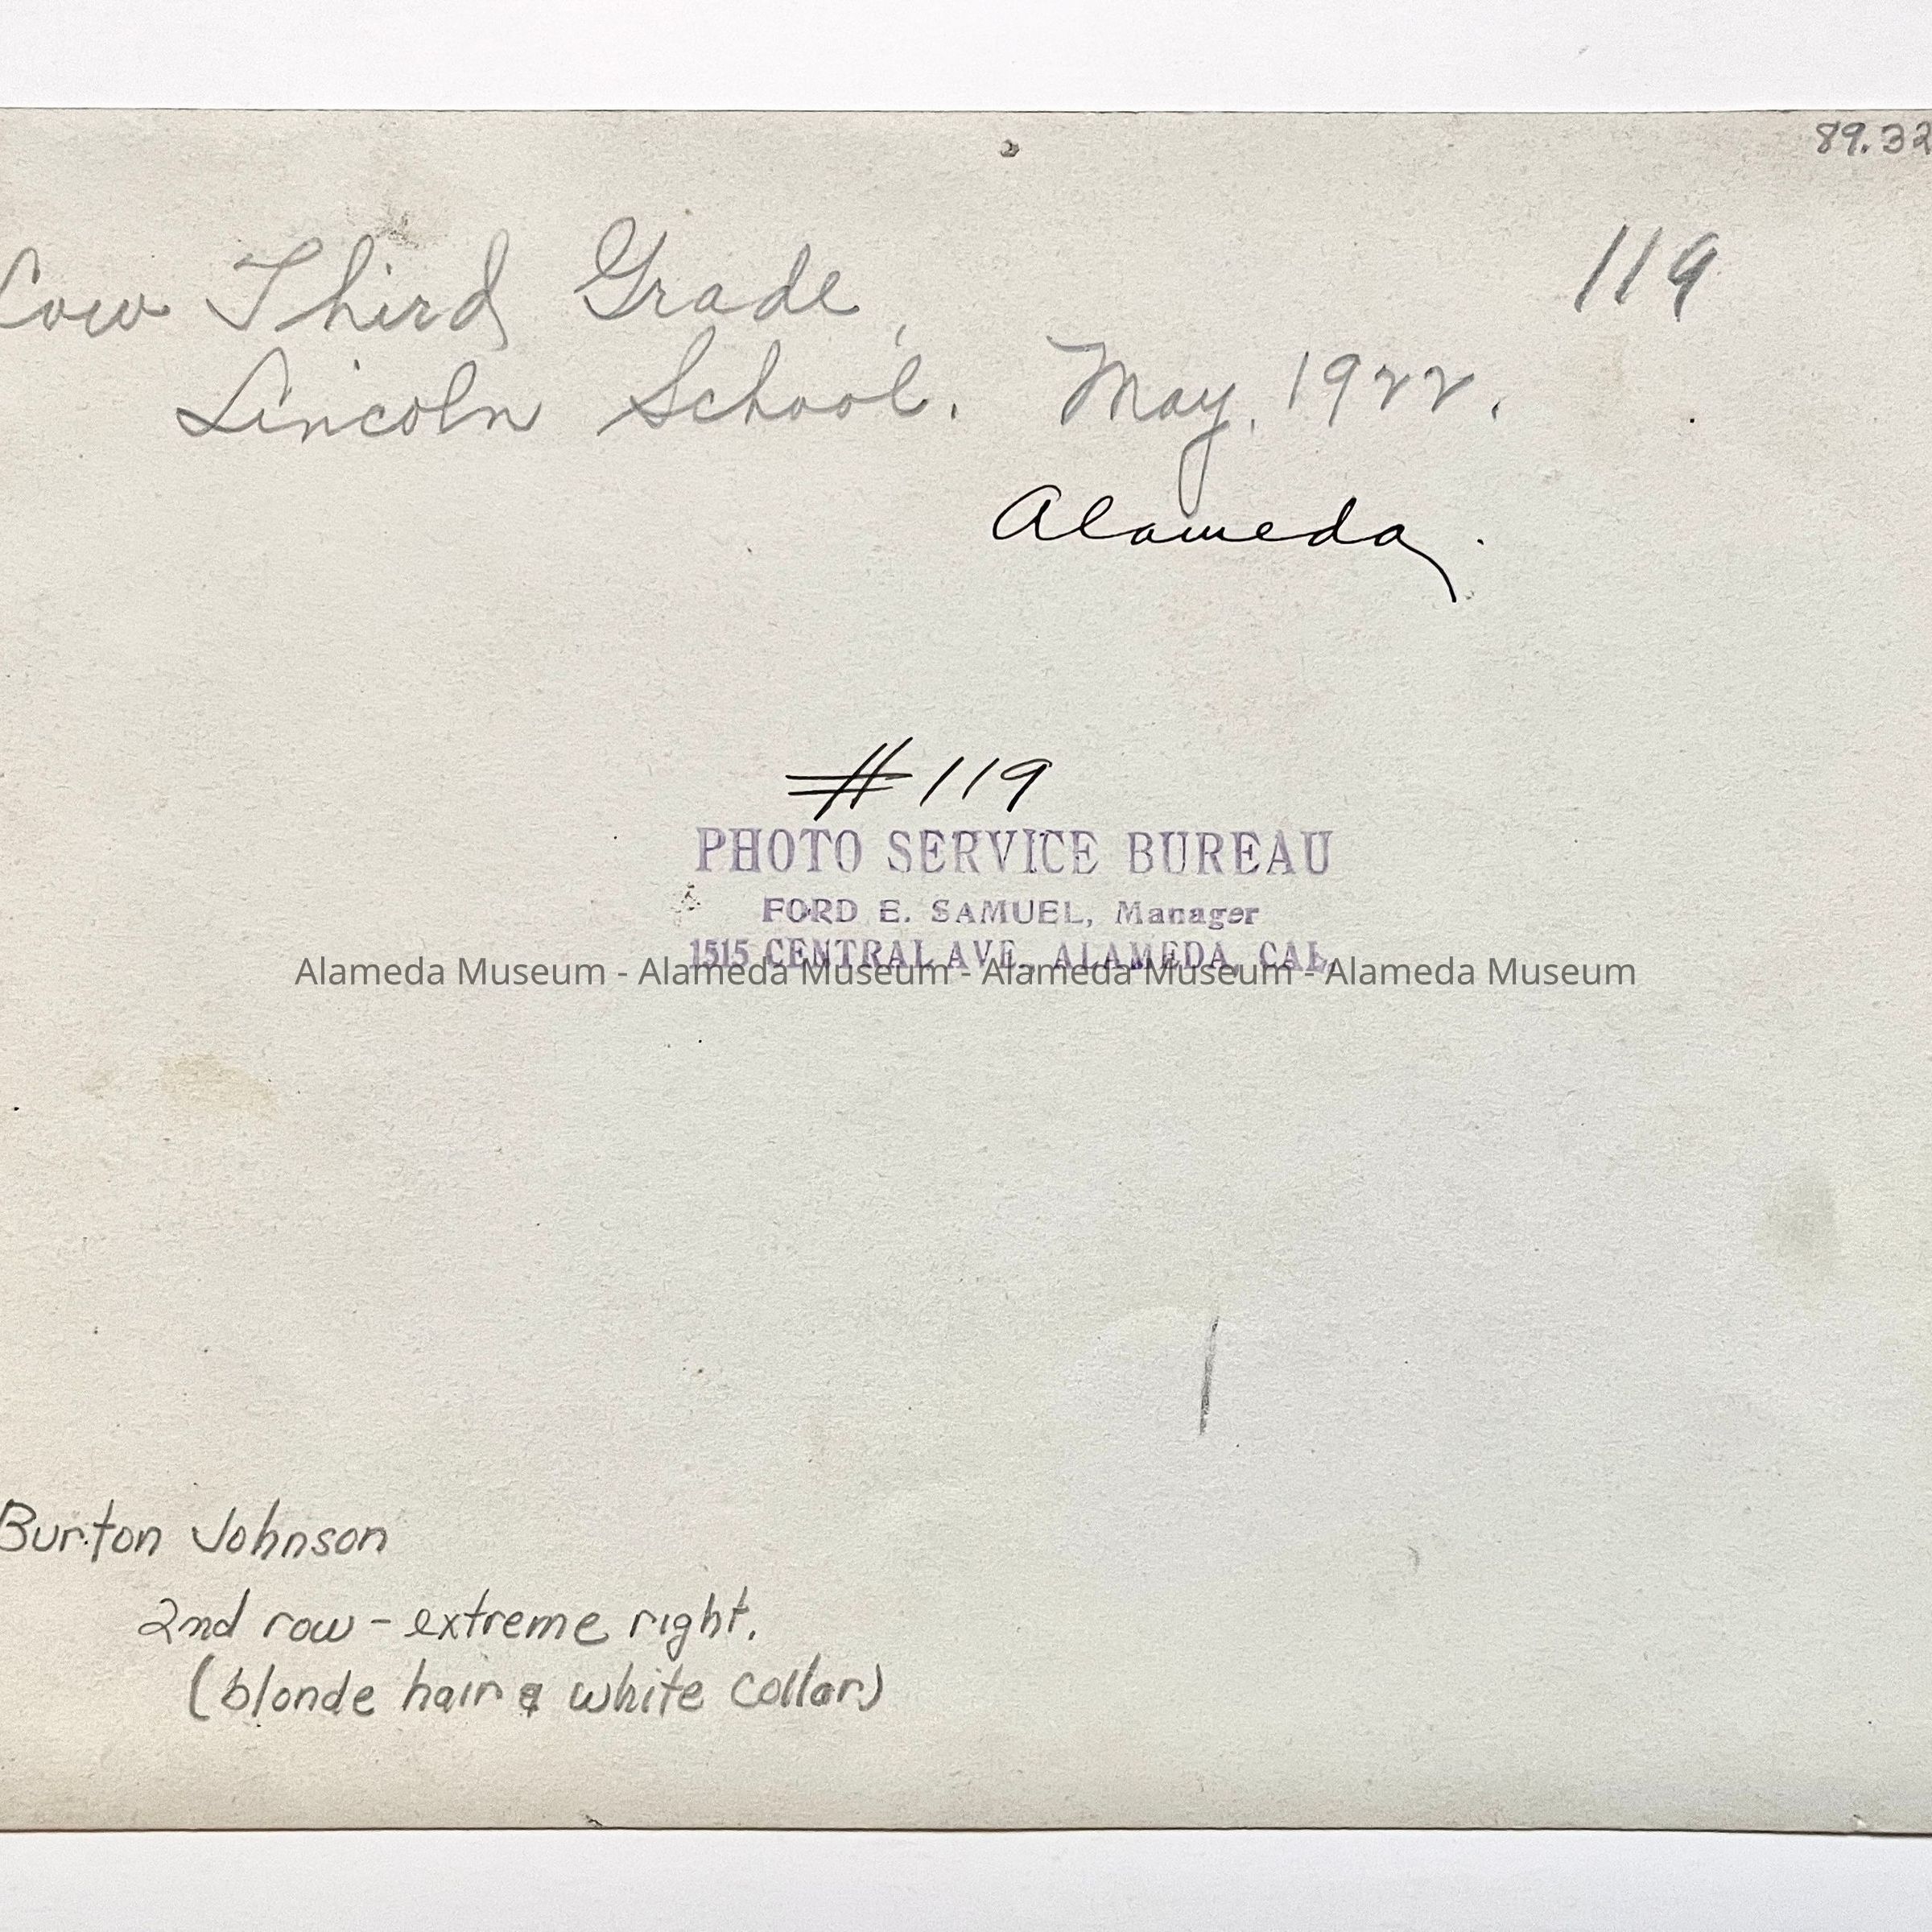 89.32
Low Third Grade, 119
Lincoln School. May, 1922.
Alameda.
#119
PHOTO SERVICE BUREAU
FORD E. SAMUEL, Manager
1515 CENTRAL AVE., ALAMEDA, CAL.
Alameda Museum - Alameda Museum - Alameda Museum - Alameda Museum
Burton Johnson
2nd row - extreme right.
(blonde hair & white collar)